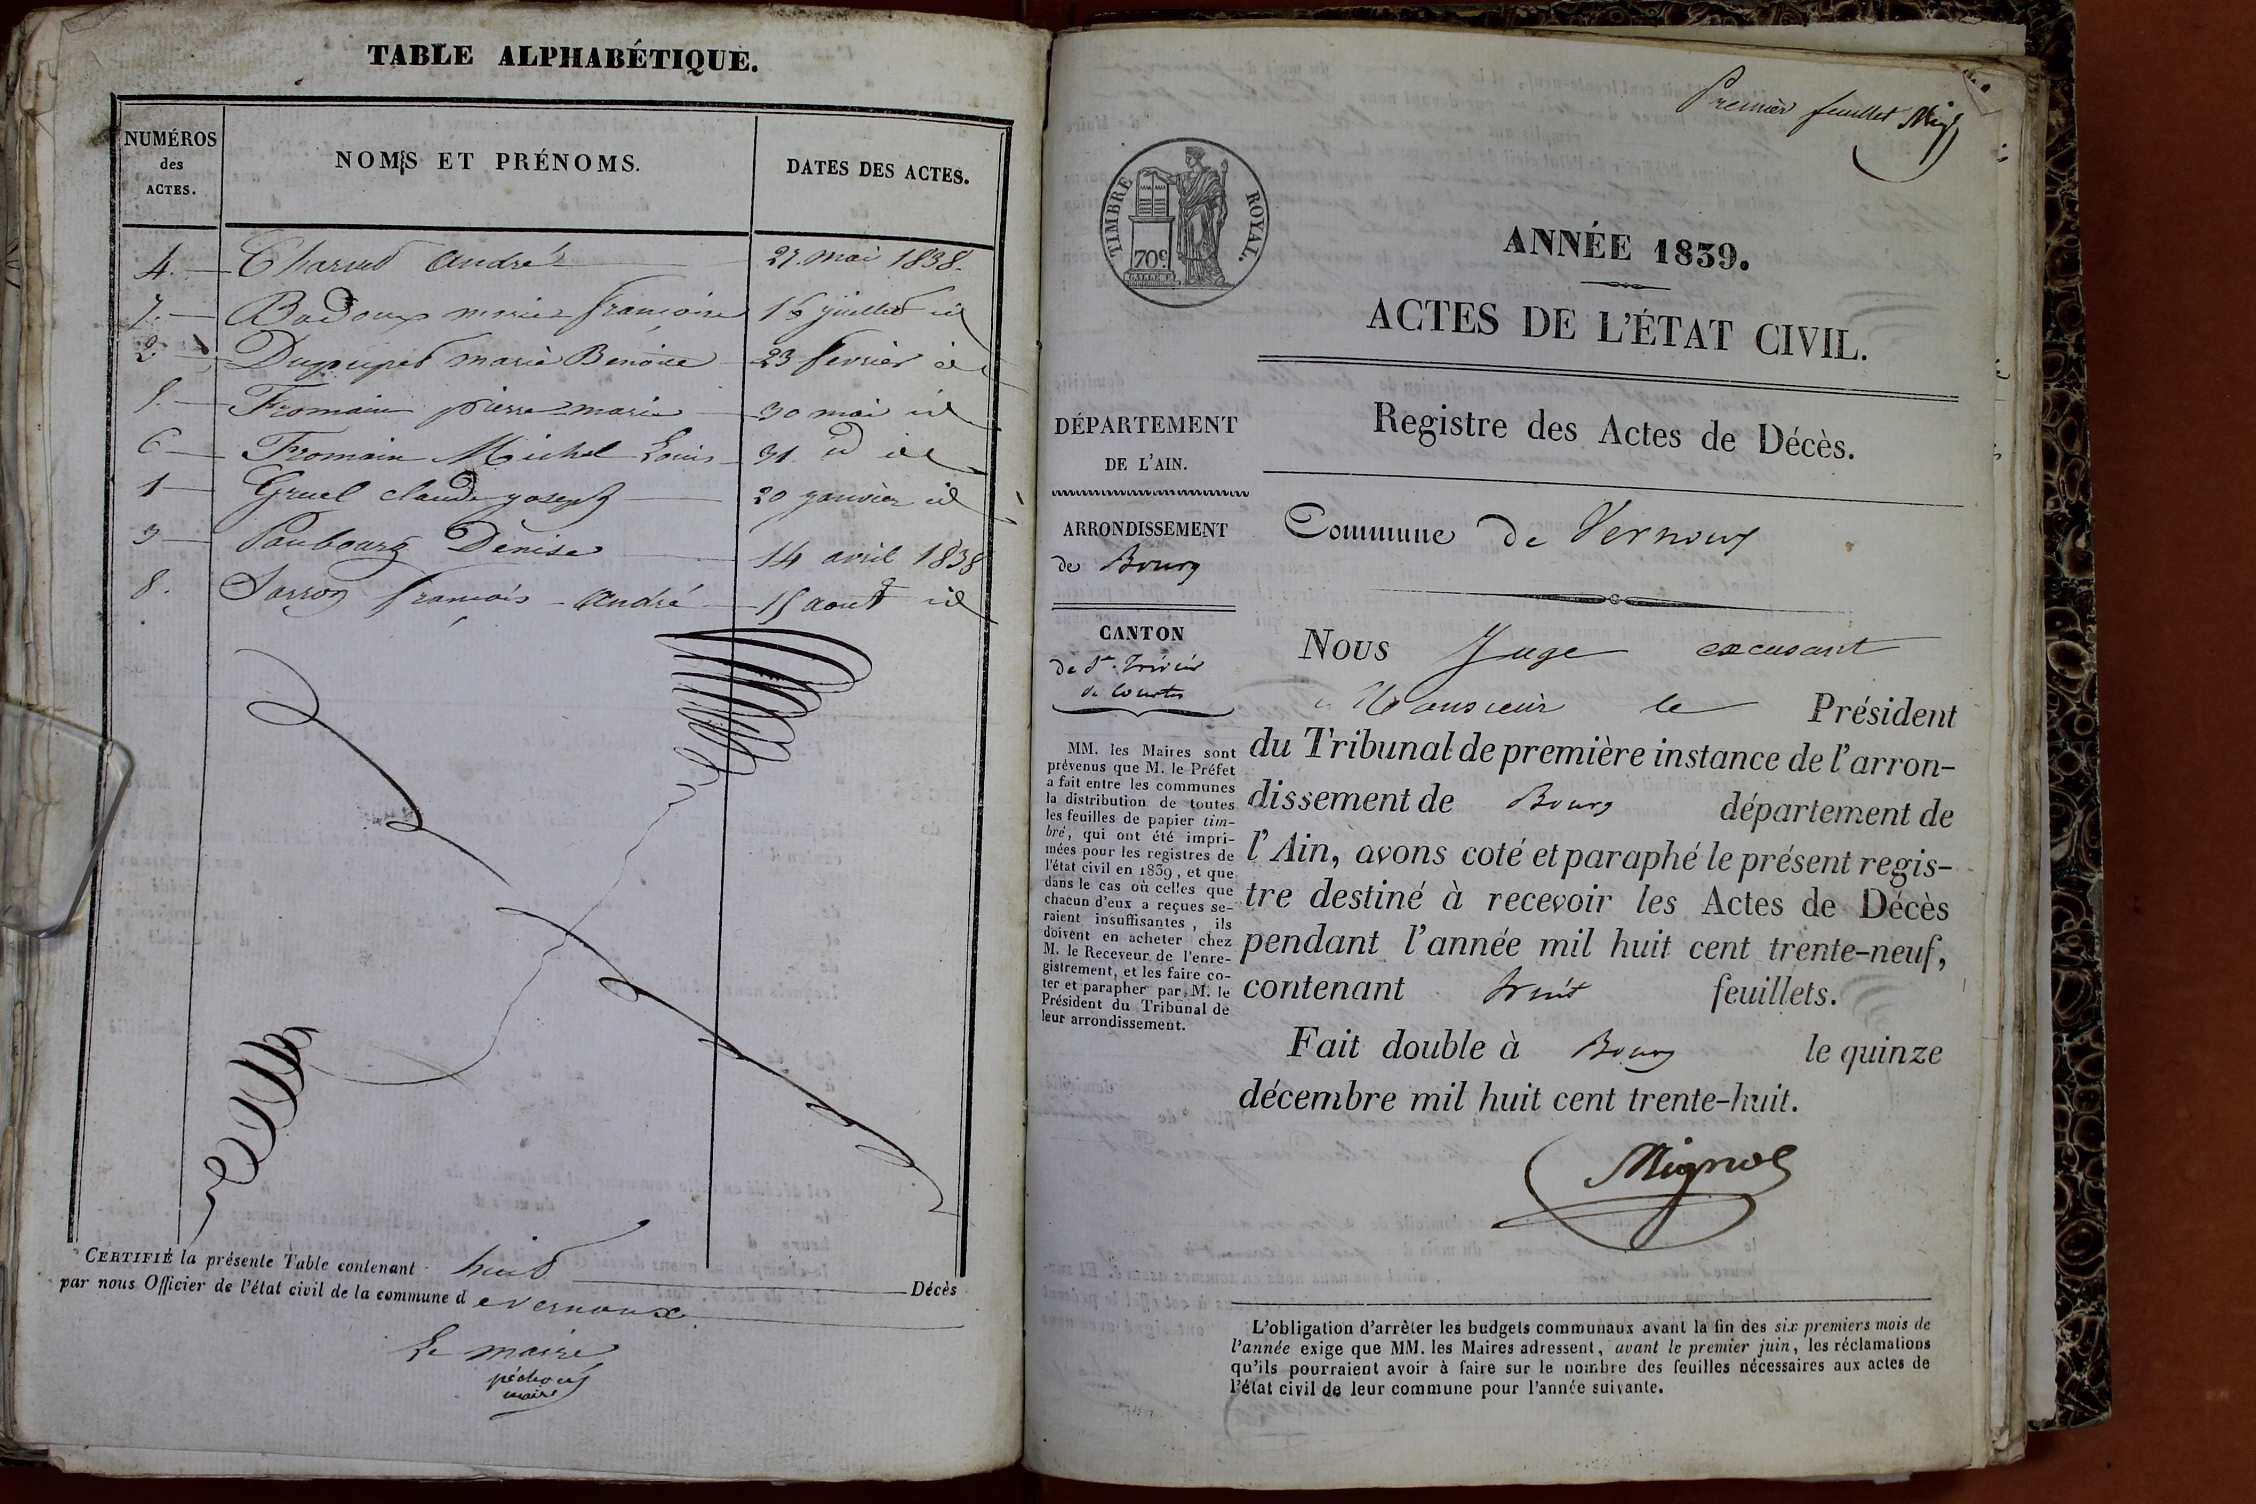 TABLE ALPHABÉTIQUE.
NUMÉROS des ACTES.
NOMS ET PRÉNOMS.
DATES DES ACTES.
4. Charnd André 27. mai 1838.
7. Badoux marie françoise 16 juillet id
2 Dupupet marie Benoite 23 fevrier id
5. Fromain pierre marie 30 mai id
6 Fromain Michel Louis 31 id id
1 Gruel claude joseph 20 janvier id
3 Paubourg Denise 14 avril 1838
8. Sarron françois andré 15 aout id
CERTIFIÉ la présente Table contenant huit Décès
par nous Officier de l'état civil de la commune de vernoux
Le maire
péchoux
maire
Premier feuillet
TIMBRE ROYAL.
70c.
ANNÉE 1839.
ACTES DE L'ÉTAT CIVIL.
Registre des Actes de Décès.
Commune de Vernoux
DÉPARTEMENT
DE L'AIN.
ARRONDISSEMENT
de Bourg
CANTON
de St. Trivier
de Courtes
MM. les Maires sont
prévenus que M. le Préfet
a fait entre les communes
la distribution de toutes
les feuilles de papier tim-
bré, qui ont été impri-
mées pour les registres de
l'état civil en 1839, et que
dans le cas où celles que
chacun d'eux a reçues se-
raient insuffisantes, ils
doivent en acheter chez
M. le Receveur de l'enre-
gistrement, et les faire co-
ter et parapher par M. le
Président du Tribunal de
leur arrondissement.
Nous Juge excusant
Monsieur le Président
du Tribunal de première instance de l'arron-
dissement de Bourg département de
l'Ain, avons coté et paraphé le présent regis-
tre destiné à recevoir les Actes de Décès
pendant l'année mil huit cent trente-neuf,
contenant huit feuillets.
Fait double à Bourg le quinze
décembre mil huit cent trente-huit.
Mignot
L'obligation d'arrêter les budgets communaux avant la fin des six premiers mois de
l'année exige que MM. les Maires adressent, avant le premier juin, les réclamations
qu'ils pourraient avoir à faire sur le nombre des feuilles nécessaires aux actes de
l'état civil de leur commune pour l'année suivante.